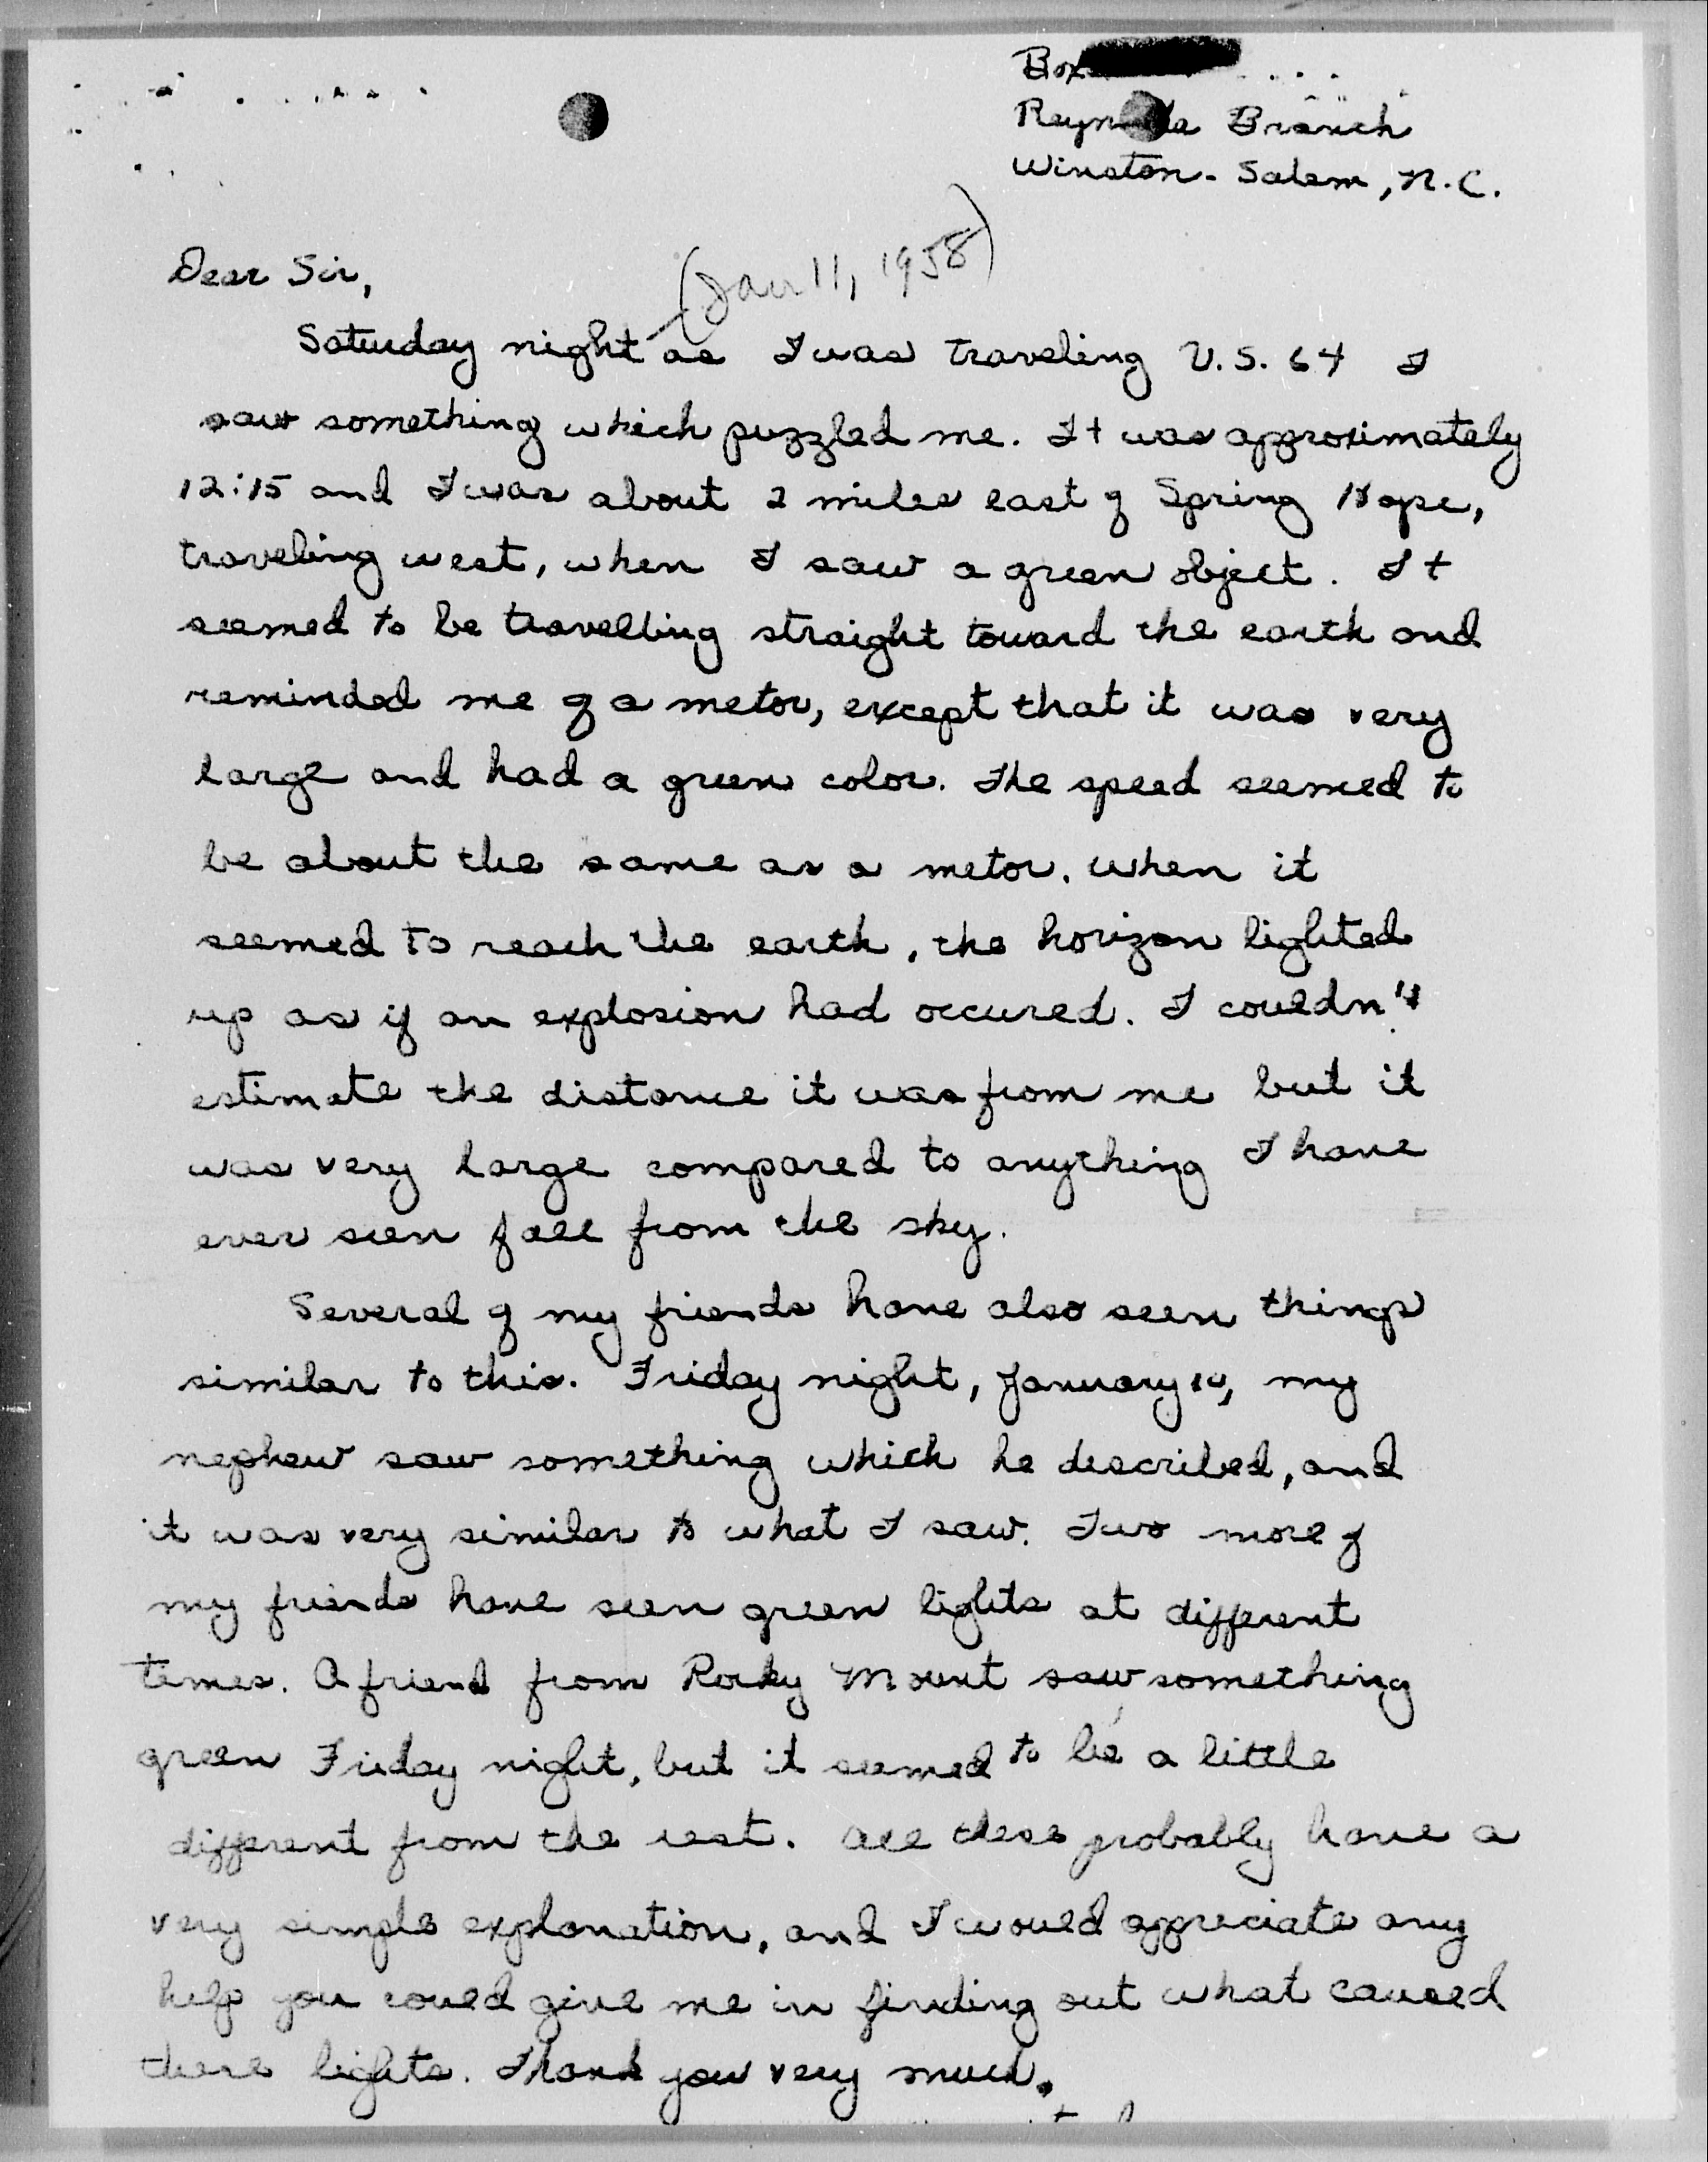 Box
Reynolda Branch
Winston-Salem, N.C.
Dear Sir,
(Jan 11, 1958)
Saturday night as I was traveling U.S. 64 I
saw something which puzzled me. It was approximately
12:15 and I was about 2 miles east of Spring Hope,
traveling west, when I saw a green object. It
seemed to be travelling straight toward the earth and
reminded me of a metor, except that it was very
large and had a green color. The speed seemed to
be about the same as a metor. When it
seemed to reach the earth, the horizon lighted
up as if an explosion had occured. I couldn't
estimate the distance it was from me but it
was very large compared to anything I have
ever seen fall from the sky.
Several of my friends have also seen things
similar to this. Friday night, January 10, my
nephew saw something which he described, and
it was very similar to what I saw. Two more of
my friends have seen green lights at different
times. A friend from Rocky Mount saw something
green Friday night, but it seemed to be a little
different from the rest. All these probably have a
very simple explanation, and I would appreciate any
help you could give me in finding out what caused
these lights. Thank you very much.